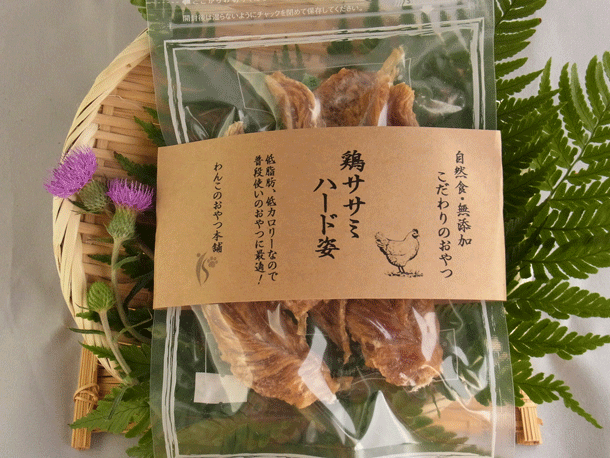 開封後は湿らないようにチャックを閉めて保存してください。
自然食・無添加
こだわりのおやつ
鶏ササミ
ハード姿
低脂肪、低カロリーなので
普段使いのおやつに最適！
わんこのおやつ本舗